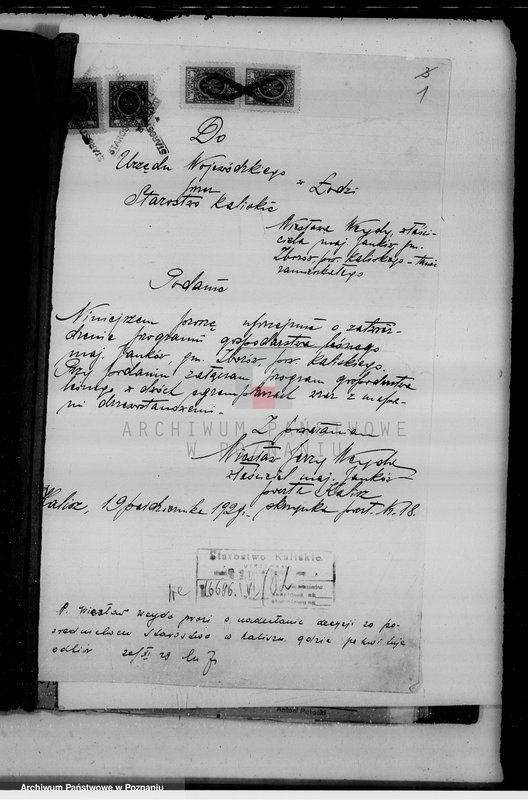 1
Do
Urzędu Wojewódzkiego
przez w Łodzi
Starostwo Kaliskie
Wiesława Weydy, właści-
ciela maj. Janków gm.
Zborów pow. Kaliskiego - 
zamieszkałego
Podanie
Niniejszem proszę uprzejmie o zatwier-
dzenie programu gospodarstwa leśnego
maj. Janków, gm. Zborów pow. Kaliskiego.
Przy podaniu załączam program gospodarstwa
leśnego w dwóch egzemplarzach wraz z mapa-
mi drzewostanowemi.
Z poważaniem
Wiesław Jerzy Weyda
właściciel maj. Janków
poczta Kalisz
Kalisz, 19 października 1929r. skrzynka poczt. N. 18.
Starostwo Kaliskie.
16696
P. Wiesław Weyda prosi o nadesłanie decyzji za po-
średnictwem Starostwa w Kaliszu gdzie pokwituje
odbiór
ARCHIWUM PAŃSTWOWE
W POZNANIU
Antoni Patocki
Archiwum Państwowe w Poznaniu